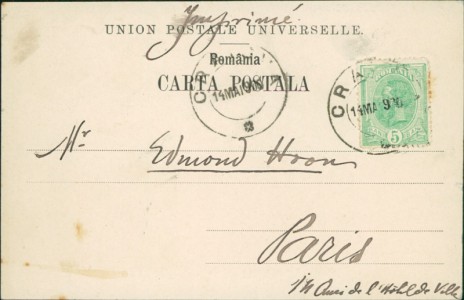 Imprimé
UNION POSTALE UNIVERSELLE.
România
CARTA POSTALA
CRA
14 MAI 900
CRA
14 MA 900
5
Mr
Edmond
Paris
de l'Hôtel de Ville